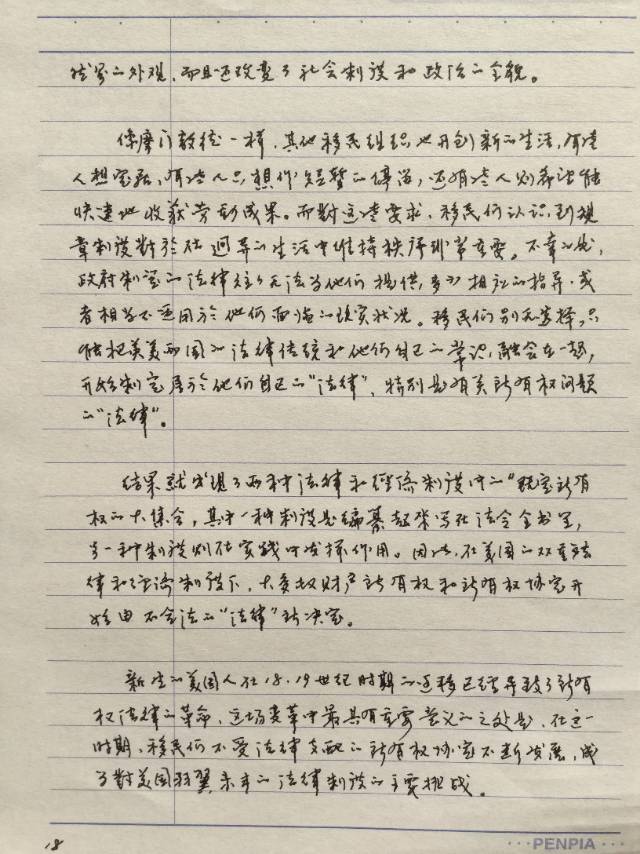 城写的外观，而且还改变了社会制设和政治的全貌。
像摩门教徒一样，其他移民组织也开创新的生活，有些
人想定居，有些人只想作短暂的停留，还有些人则希望能
快速地收获劳动成果。而對这些要求，移民们认识到规
章制设對於在迥异的生活中维持秩序非常重要。不幸的是，
政府制定的法律往往无法为他们提供，多少相应的指导，或
者相当不适用於他们面临的现实状况。移民们别无选择，只
能把英美两国的法律传统和他们自己的常识，融合在一起，
开始制定属於他们自己的“法律”，特别是有关所有权问题
的“法律”。
结果就出现了两种法律和经济制设中的“规定所有
权的大集合，其中一种制设是编纂起来写在法令全书里，
另一种制设则在实践中发挥作用。因此，在美国的双重法
律和经济制设下，大多数财产所有权和所有权协定开
始由不合法的“法律”所决定。
新生的美国人在18，19世纪时期的迁移已经导致了所有
权法律的革命，这场变革中最具有重要意义的之处是，在这一
时期，移民们不受法律支配的所有权协定不断发展，成
了對美国羽翼未丰的法律制设的主要挑战。
18
PENPIA